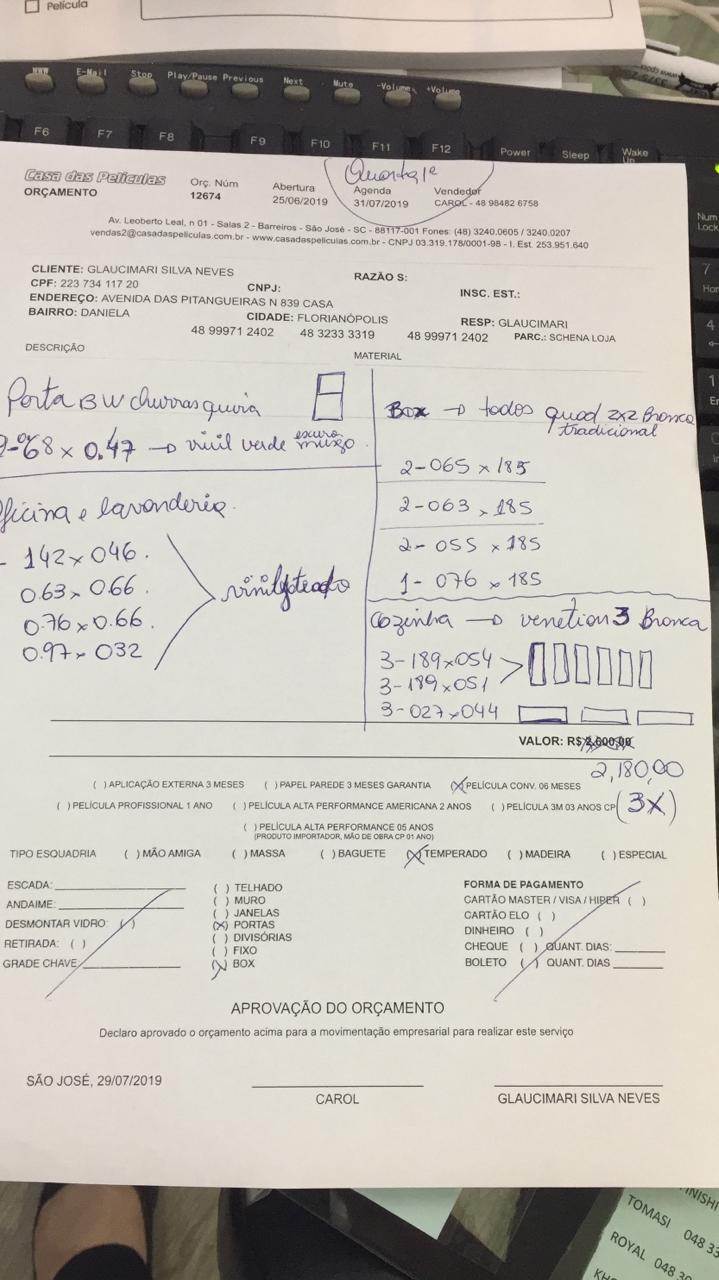 Película
WWW E-Mail Stop Play/Pause Previous Next Mute -Volume +Volume
F6 F7 F8 F9 F10 F11 F12 Power Sleep Wake Up
Num Lock
7
4
1
Casa das Películas
ORÇAMENTO
Orç. Núm
12674
Abertura
25/06/2019
Agenda
31/07/2019
Vendedor
CAROL - 48 98482 6758
Av. Leoberto Leal, n 01 - Salas 2 - Barreiros - São José - SC - 88117-001 Fones: (48) 3240.0605 / 3240.0207
vendas2@casadaspeliculas.com.br - www.casadaspeliculas.com.br - CNPJ 03.319.178/0001-98 - I. Est. 253.951.640
CLIENTE: GLAUCIMARI SILVA NEVES RAZÃO S:
CPF: 223 734 117 20 CNPJ: INSC. EST.:
ENDEREÇO: AVENIDA DAS PITANGUEIRAS N 839 CASA
BAIRRO: DANIELA CIDADE: FLORIANÓPOLIS RESP: GLAUCIMARI
48 99971 2402 48 3233 3319 48 99971 2402 PARC.: SCHENA LOJA
DESCRIÇÃO MATERIAL
Porta BW churrasquuia
68 x 0.47 → vinil verde escuro musgo
oficina e lavanderia.
- 142 x 046.
0.63 x 0.66.
0.76 x 0.66.
0.97 x 032
Box → todos quad 2x2 Branca
tradicional
2-065 x 185
2-063 x 185
2-055 x 185
1-076 x 185
Cozinha → venetion 3 Branca
3-189x054
3-189x051
3-027x044
VALOR: R$ 2.600,00
2,180,00
( ) APLICAÇÃO EXTERNA 3 MESES ( ) PAPEL PAREDE 3 MESES GARANTIA (X) PELÍCULA CONV. 06 MESES
( ) PELÍCULA PROFISSIONAL 1 ANO ( ) PELÍCULA ALTA PERFORMANCE AMERICANA 2 ANOS ( ) PELÍCULA 3M 03 ANOS CP (3X)
( ) PELÍCULA ALTA PERFORMANCE 05 ANOS
(PRODUTO IMPORTADOR, MÃO DE OBRA CP 01 ANO)
TIPO ESQUADRIA ( ) MÃO AMIGA ( ) MASSA ( ) BAGUETE (X) TEMPERADO ( ) MADEIRA ( ) ESPECIAL
ESCADA:
ANDAIME:
DESMONTAR VIDRO: ( )
RETIRADA: ( )
GRADE CHAVE:
( ) TELHADO
( ) MURO
( ) JANELAS
(X) PORTAS
( ) DIVISÓRIAS
( ) FIXO
(X) BOX
FORMA DE PAGAMENTO
CARTÃO MASTER / VISA / HIPER ( )
CARTÃO ELO ( )
DINHEIRO ( )
CHEQUE ( ) QUANT. DIAS:
BOLETO ( ) QUANT. DIAS
APROVAÇÃO DO ORÇAMENTO
Declaro aprovado o orçamento acima para a movimentação empresarial para realizar este serviço
SÃO JOSÉ, 29/07/2019
CAROL
GLAUCIMARI SILVA NEVES
TOMASI 048 33
ROYAL 048 30